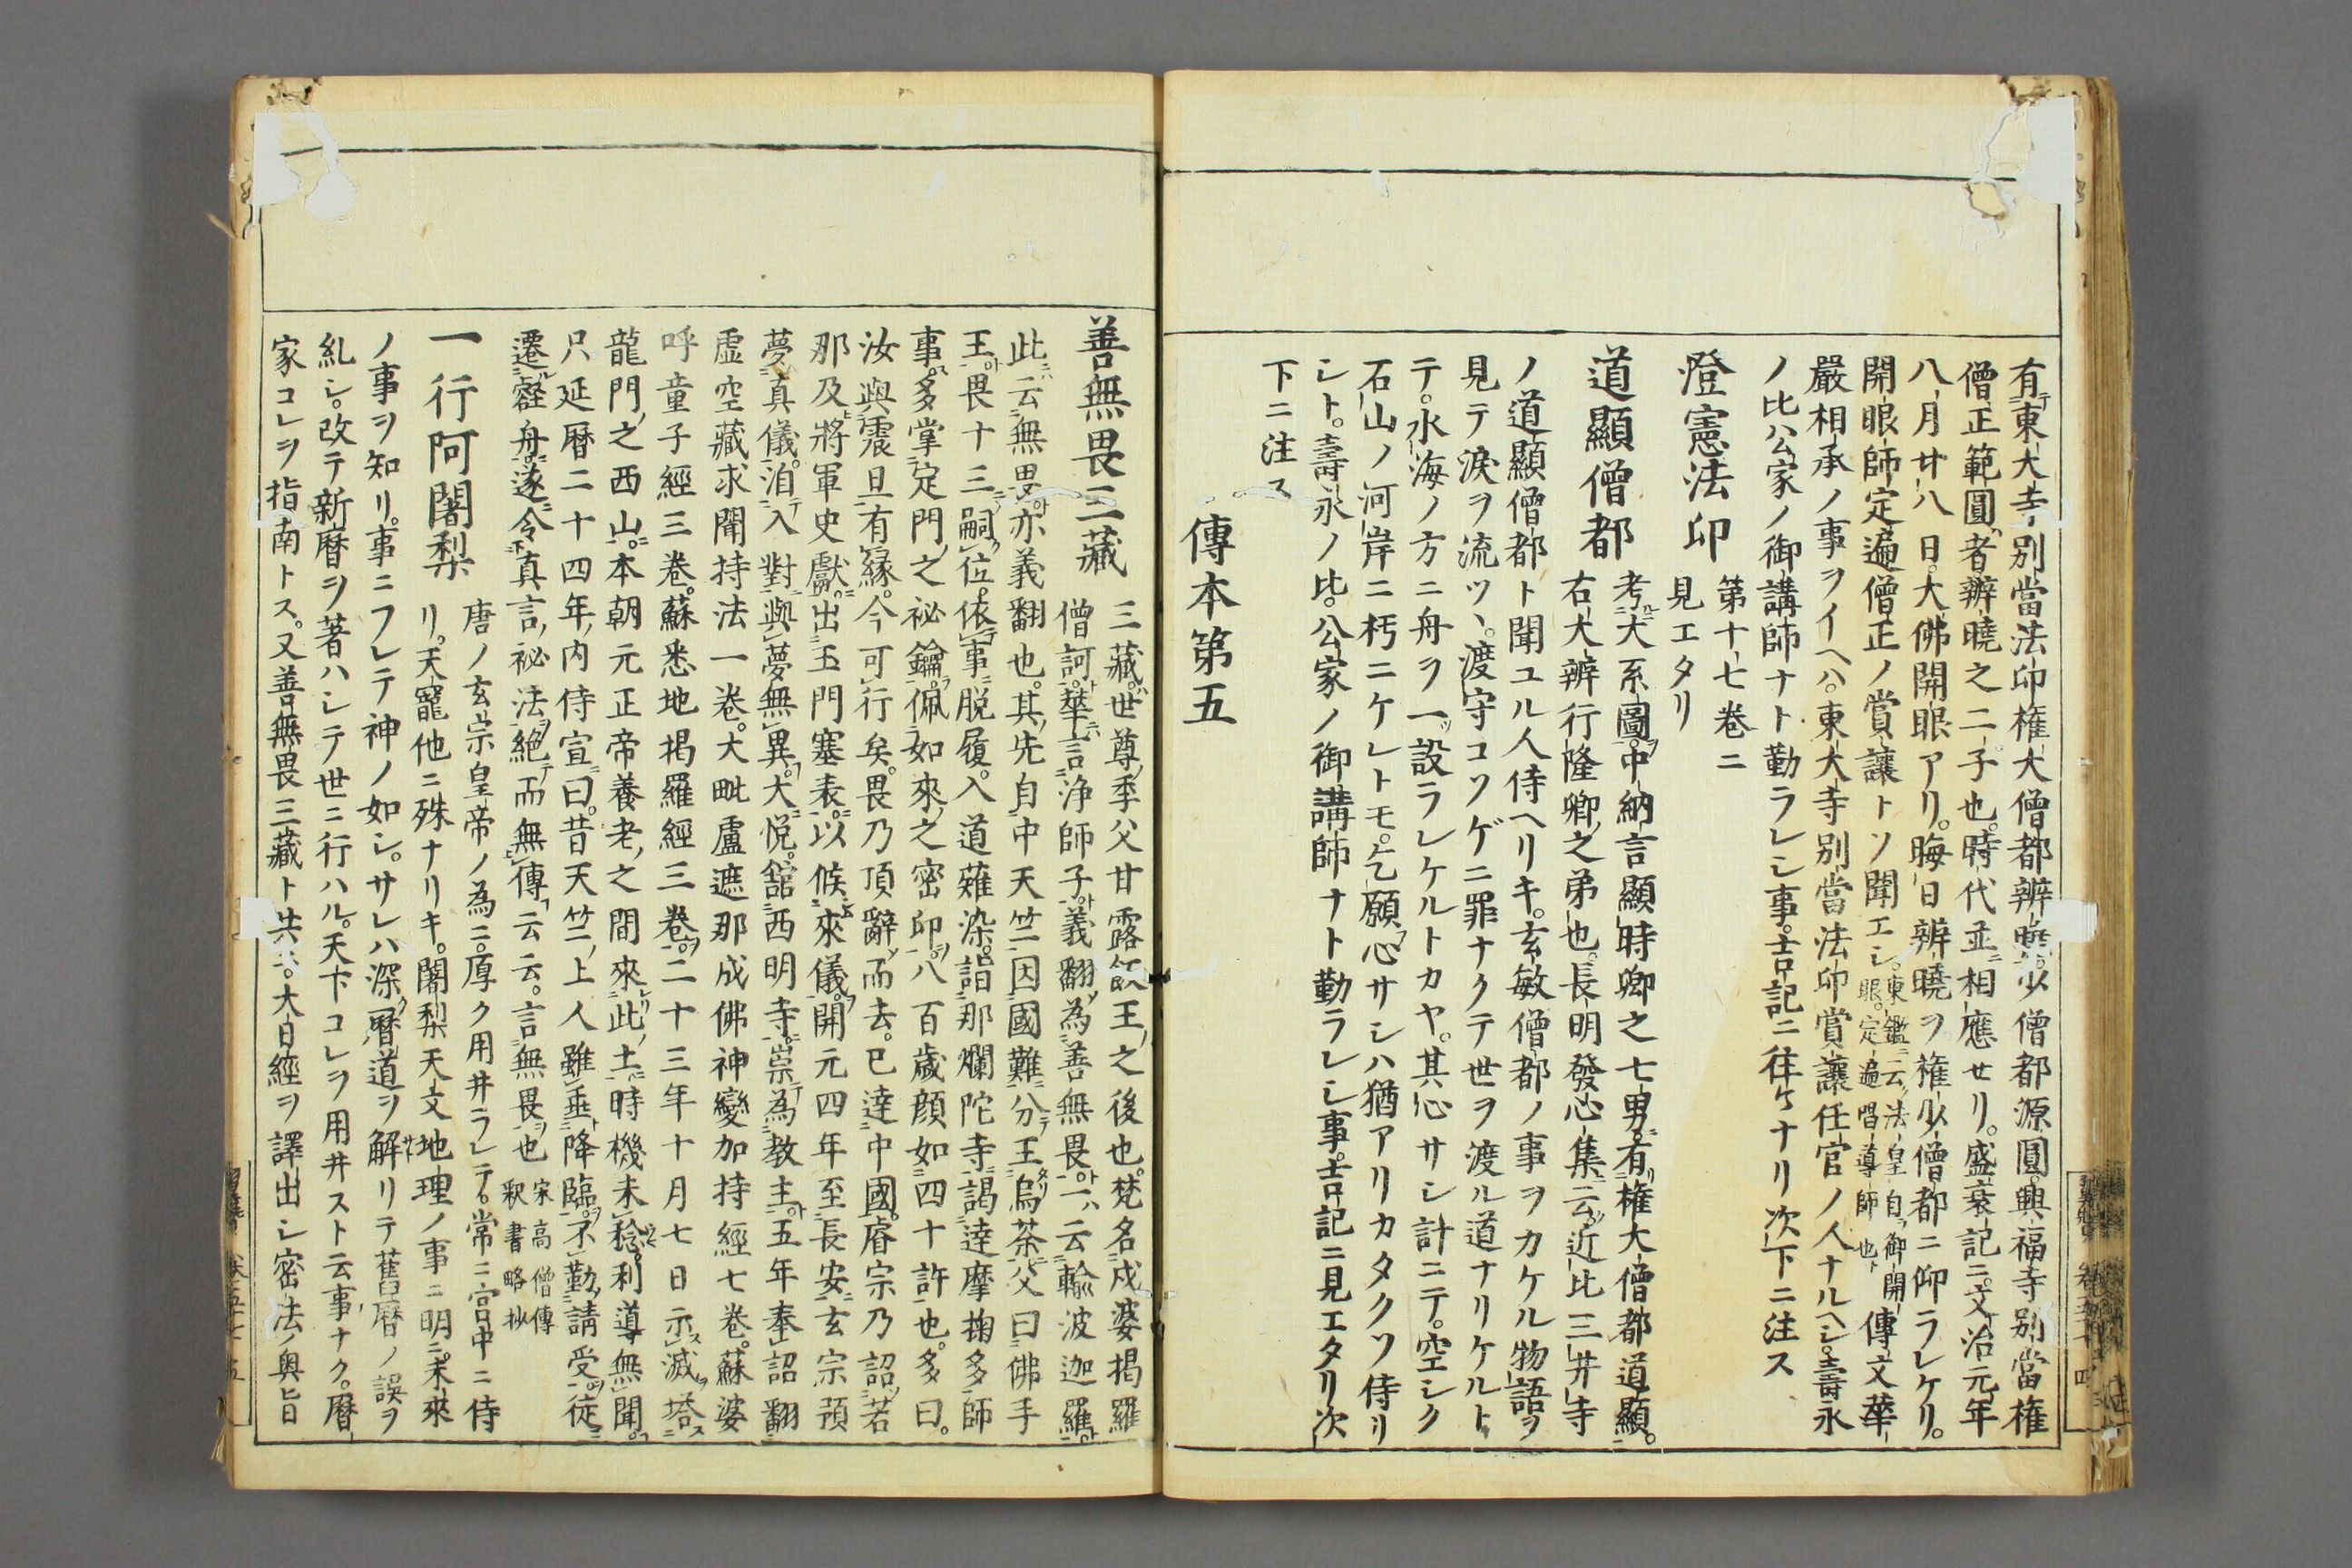 有東大寺別當法印権大僧都辨暁少僧都源圓興福寺別當権
僧正範圓者辨曉之二子也時代並相應セリ。盛衰記ニ文治元年
八月廿八日。大佛開眼アリ。晦日辨曉ヲ権少僧都ニ仰ラレケリ。
開眼師定遍僧正ノ賞讓トソ聞エシ。東鑑云法皇自御開眼。定遍唱導師也ト 傳文華
嚴相承ノ事ヲイヘハ。東大寺別當法印賞讓任官ノ人ナルヘシ。壽永
ノ比公家ノ御講師ナト勤ラレシ事。吉記ニ往々ナリ次下ニ注ス
澄憲法印 第十七巻ニ見エタリ
道顯僧都 考大系圖中納言顯時卿之七男有権大僧都道顯。
右大辨行隆卿之弟也。長明發心集云近比三井寺
ノ道顯僧都ト聞ユル人侍ヘリキ。玄敏僧都ノ事ヲカケル物語ヲ
見テ淚ヲ流ツヽ。渡守コソゲニ罪ナクテ世ヲ渡ル道ナリケルト
テ。水海ノ方ニ舟ヲ一設ラレケルトカヤ。其心サシ計ニテ。空シク
石山ノ河岸ニ朽ニケレトモ。乞願心サシハ猶アリカタクソ侍リ
シト。壽永ノ比。公家ノ御講師ナト勤ラレシ事。吉記ニ見エタリ次
下ニ注ス
傳本第五
善無畏三藏 三藏世尊季父甘露飯王之後也。梵名戍婆揭羅
僧訶。華言浄師子義翻為善無畏。一云輸波迦羅
此云無畏亦義翻也。其先自中天竺因國難分王烏荼父曰佛手
王。畏十三嗣位。依事脱履。入道薙染。詣那爛陀寺謁達摩掬多師
事。多掌定門之祕鑰佩如來之密印八百歳顔如四十許也。多曰。
汝與震旦有縁。今可行矣。畏乃頂辭而去。已達中國睿宗乃詔若
那及將軍史獻。出玉門塞表。以候來儀。開元四年至長安玄宗預
夢真儀。洎入對與夢無異大悦。舘西明寺。崇為教主。五年奉詔翻
虚空藏求聞持法一巻。大毗盧遮那成佛神變加持經七巻。蘇婆
呼童子經三巻。蘇悉地揭羅經三巻二十三年十月七日示滅塔
龍門之西山。本朝元正帝養老之間來此土時機未稔。利導無聞。
只延暦二十四年内侍宣曰。昔天竺上人雖垂降臨不勤請受徒
遷壑舟。遂令真言祕法絶而無傳云云。言無畏也 宋高僧傳釈書略抄
一行阿闍梨 唐ノ玄宗皇帝ノ為ニ。厚ク用井ラレテ。常ニ宮中ニ侍
リ。天寵他ニ殊ナリキ。闍梨天文地理ノ事ニ明ニ。未來
ノ事ヲ知リ。事ニフレテ神ノ如シ。サレハ深暦道ヲ解リテ舊暦ノ誤ヲ
糺シ。改テ新暦ヲ著ハシテ世ニ行ハル。天下コレヲ用井スト云事ナク。暦
家コレヲ指南トス。又善無畏三藏ト共ニ。大日經ヲ譯出シ密法ノ奥旨